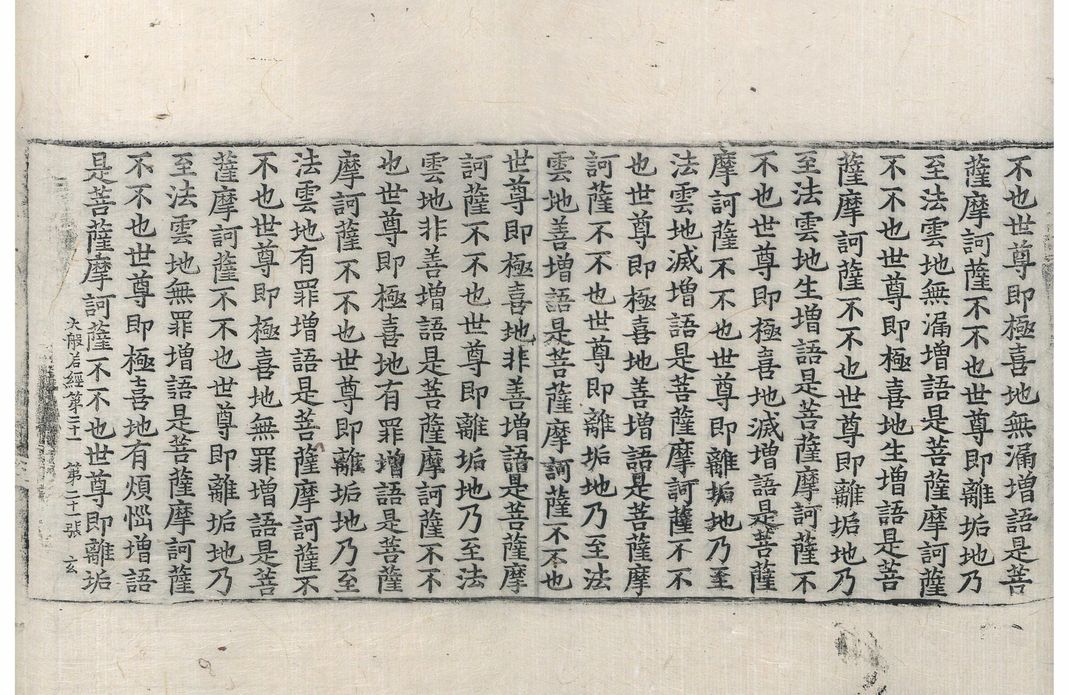 不也世尊即極喜地無漏增語是菩
薩摩訶薩不不也世尊即離垢地乃
至法雲地無漏增語是菩薩摩訶薩
不不也世尊即極喜地生增語是菩
薩摩訶薩不不也世尊即離垢地乃
至法雲地生增語是菩薩摩訶薩不
不也世尊即極喜地滅增語是菩薩
摩訶薩不不也世尊即離垢地乃至
法雲地滅增語是菩薩摩訶薩不不
也世尊即極喜地善增語是菩薩摩
訶薩不不也世尊即離垢地乃至法
雲地善增語是菩薩摩訶薩不不也
世尊即極喜地非善增語是菩薩摩
訶薩不不也世尊即離垢地乃至法
雲地非善增語是菩薩摩訶薩不不
也世尊即極喜地有罪增語是菩薩
摩訶薩不不也世尊即離垢地乃至
法雲地有罪增語是菩薩摩訶薩不
不也世尊即極喜地無罪增語是菩
薩摩訶薩不不也世尊即離垢地乃
至法雲地無罪增語是菩薩摩訶薩
不不也世尊即極喜地有煩惱增語
是菩薩摩訶薩不不也世尊即離垢
大般若經第三十一 第二十張 玄